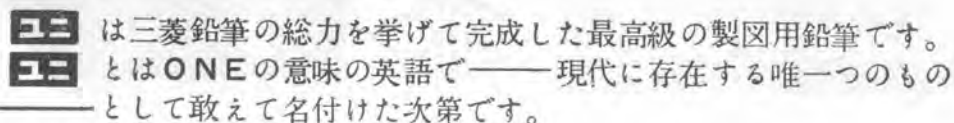 ユニ は三菱鉛筆の総力を挙げて完成した最高級の製図用鉛筆です。
ユニ とはONEの意味の英語で――現代に存在する唯一つのもの
――として敢えて名付けた次第です。